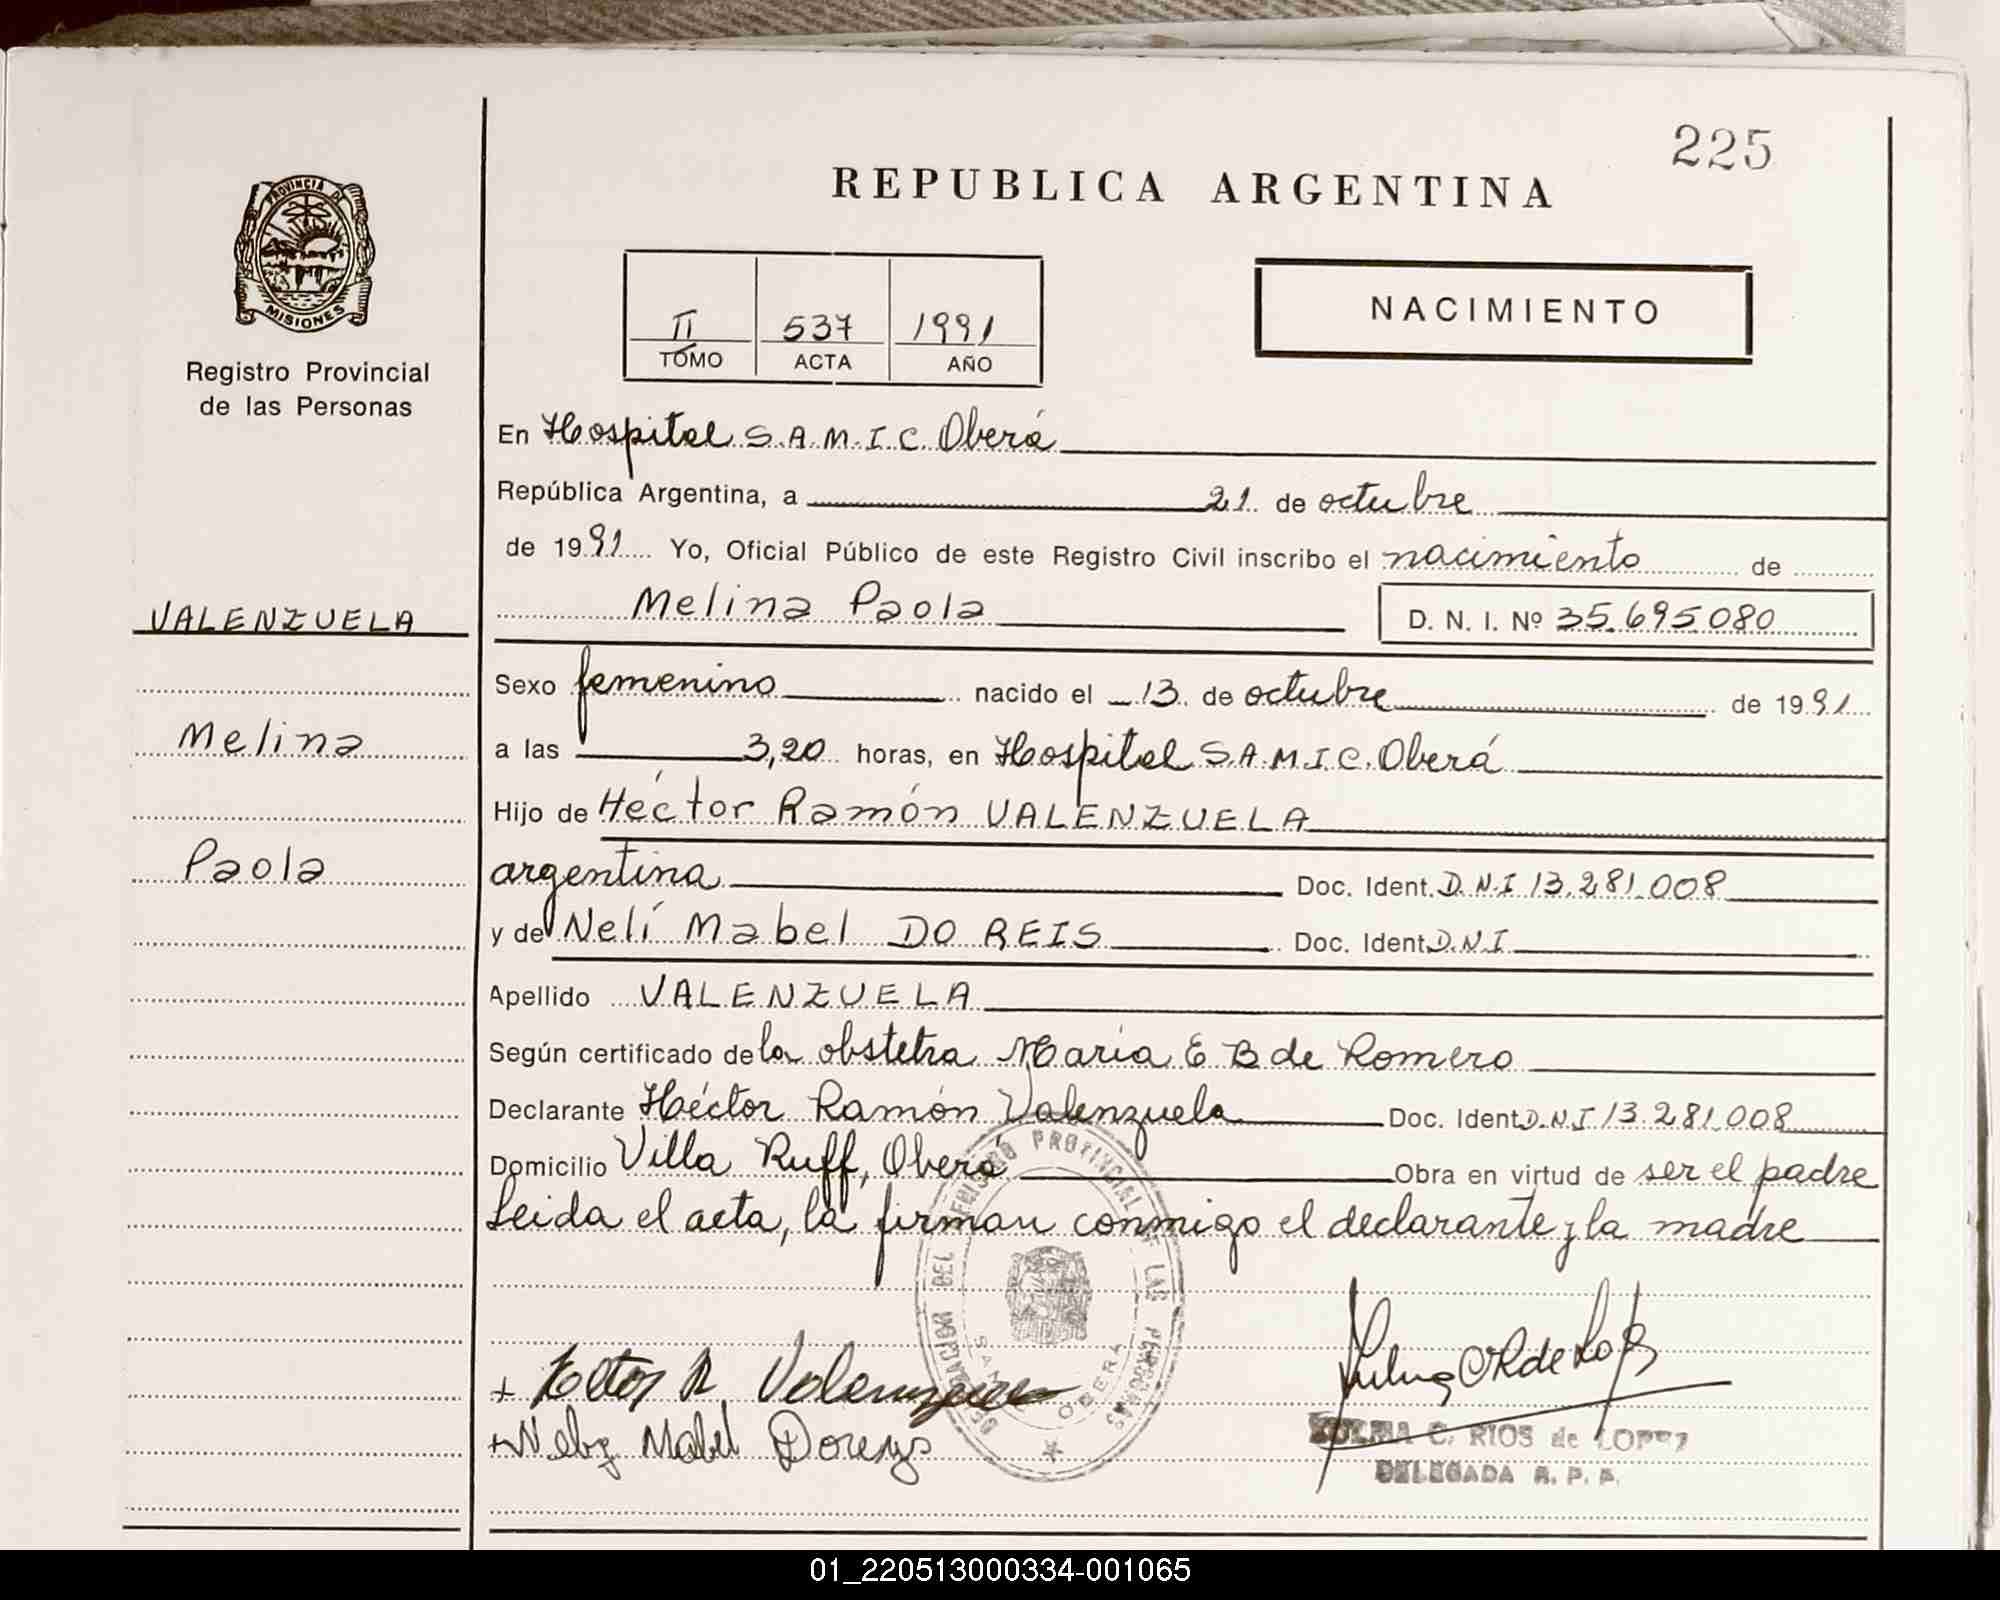 225
REPUBLICA ARGENTINA
PROVINCIA DE
MISIONES
Registro Provincial
de las Personas
II 537 1991
TOMO ACTA AÑO
NACIMIENTO
En Hospital S.A.M.I.C. Oberá
República Argentina, a 21 de octubre
de 1991 Yo, Oficial Público de este Registro Civil inscribo el nacimiento de
Melina Paola D. N. I. Nº 35.695.080
VALENZUELA
Melina
Paola
Sexo femenino nacido el 13 de octubre de 1991
a las 3,20 horas, en Hospital S.A.M.I.C. Oberá
Hijo de Héctor Ramón VALENZUELA
argentina Doc. Ident. D.N.I 13.281.008
y de Nelí Mabel DO REIS Doc. Ident. D.N.I
Apellido VALENZUELA
Según certificado de la obstetra María E B de Romero
Declarante Héctor Ramón Valenzuela Doc. Ident. D.N.I 13.281.008
Domicilio Villa Ruff, Oberá Obra en virtud de ser el padre
Leida el acta, la firman conmigo el declarante y la madre
DEL REGISTRO PROVINCIAL DE LAS PERSONAS
OBERA
C. RIOS de LOPEZ
DELEGADA R. P. P.
01_220513000334-001065